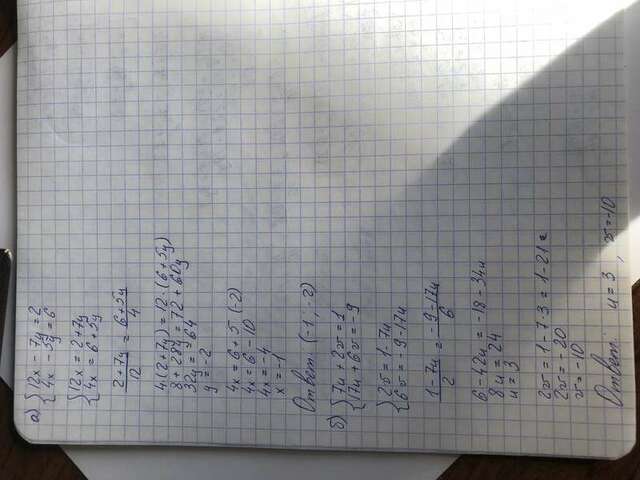 а) { 12x - 7y = 2
4x - 5y = 6
{ 12x = 2+7y
4x = 6+5y
2+7y/12 = 6+5y/4
4·(2+7y) = 12·(6+5y)
8 + 28y = 72 + 60y
32y = -64
y = -2
4x = 6 + 5 (-2)
4x = 6 - 10
4x = -4
x = -1
Ответ: (-1; -2)
б) { 7u + 2v = 1
17u + 6v = -9
{ 2v = 1 - 7u
6v = -9 - 17u
1-7u/2 = -9-17u/6
6 - 42u = -18 - 34u
8u = 24
u = 3
2v = 1 - 7·3 = 1 - 21
2v = -20
v = -10
Ответ: u = 3, v = -10